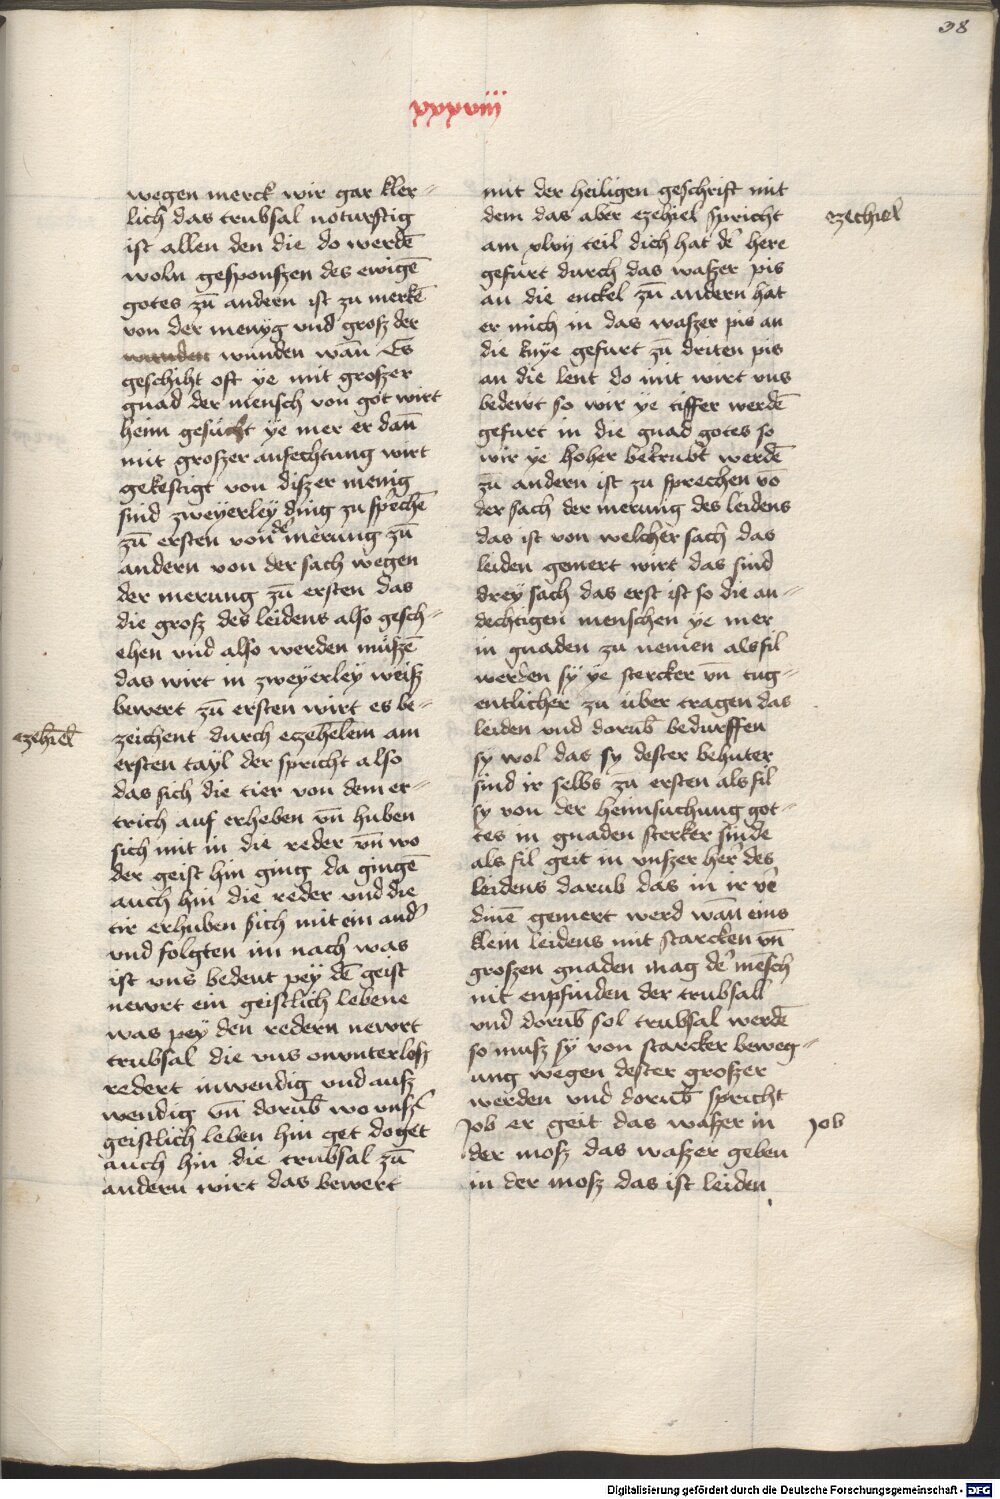 38
xxxviii
wegen merck wir gar kler-
lich das trubsal noturftig
ist allen den die do werdē
woln gesponszen des ewigē
gotes zū andern ist zu merkē
von der menyg vnd grosz der
wunden wunden wān Es
geschiht oft ye mit groszer
gnad der mensch von got wirt
heim gesucht ye mer er dān
mit groszer anfechtung wirt
gekestigt von diszer menig
sind zweyerley ding zu sprechē
zū ersten von de' merung zū
andern von der sach wegen
der merung zū ersten das
die grosz des leidens also gesch-
ehen vnd also werden müszē
das wirt in zweyerley weisz
bewert zū ersten wirt es be-
ezechiel
zeichent durch ezechelem am
ersten tayl der spricht also
das sich die tier von dem er-
trich auf erheben vn̄ huben
sich mit in die reder vn̄ wo
der geist hin ging da gingē
auch hin die reder vnd die
tir erhuben sich mit ein and'
vnd folgten im nach was
ist vns bedeut pey dē geist
newrt ein geistlich lebene
was pey den redern newrt
trubsal die vns onunterlosz
redert inwendig vnd ausz
wendig vn̄ dorūb wo vnsz'
geistlich leben hin get do get
auch hin die trubsal zū
andern wirt das bewert
mit der heiligen geschrift mit
dem das aber ezehiel spricht
ezechiel
am xlvij teil dich hat de' here
gefurt durch das waszer pis
an die enckel zū andern hat
er mich in das waszer pis an
die knye gefurt zū driten pis
an die lent do mit wirt vns
bedewt so wir ye tiffer werdē
gefurt in die gnad gotes so
wir ye hoher betrubt werdē
zū andern ist zu sprechen vō
der sach der merung des leidens
das ist von welcher sach das
leiden gemert wirt das sind
drey sach das erst ist so die an-
dechtigen menschen ye mer
in gnaden zu nemen als fil
werden sy ye stercker vn̄ tug-
entlicher zu über tragen das
leiden vnd dorūb bedurffen
sy wol das sy dester behuter
sind ir selbs zu ersten als fil
sy von der heimsuchung got-
tes in gnaden sterker sinde
als fil geit in vnszer her' des
leidens darub das in ir v'
dinē gemert werd wān eins
klein leidens mit starcken vn̄
groszen gnaden mag de' mēsch
nit enpfinden der trubsall
vnd dorūb sol trubsal werdē
so musz sy von starcker beweg-
ung wegen dester groszer
werden vnd dorūb spricht
Job er geit das waszer in
Job
der mosz das waszer geben
in der mosz das ist leiden
Digitalisierung gefördert durch die Deutsche Forschungsgemeinschaft - DFG